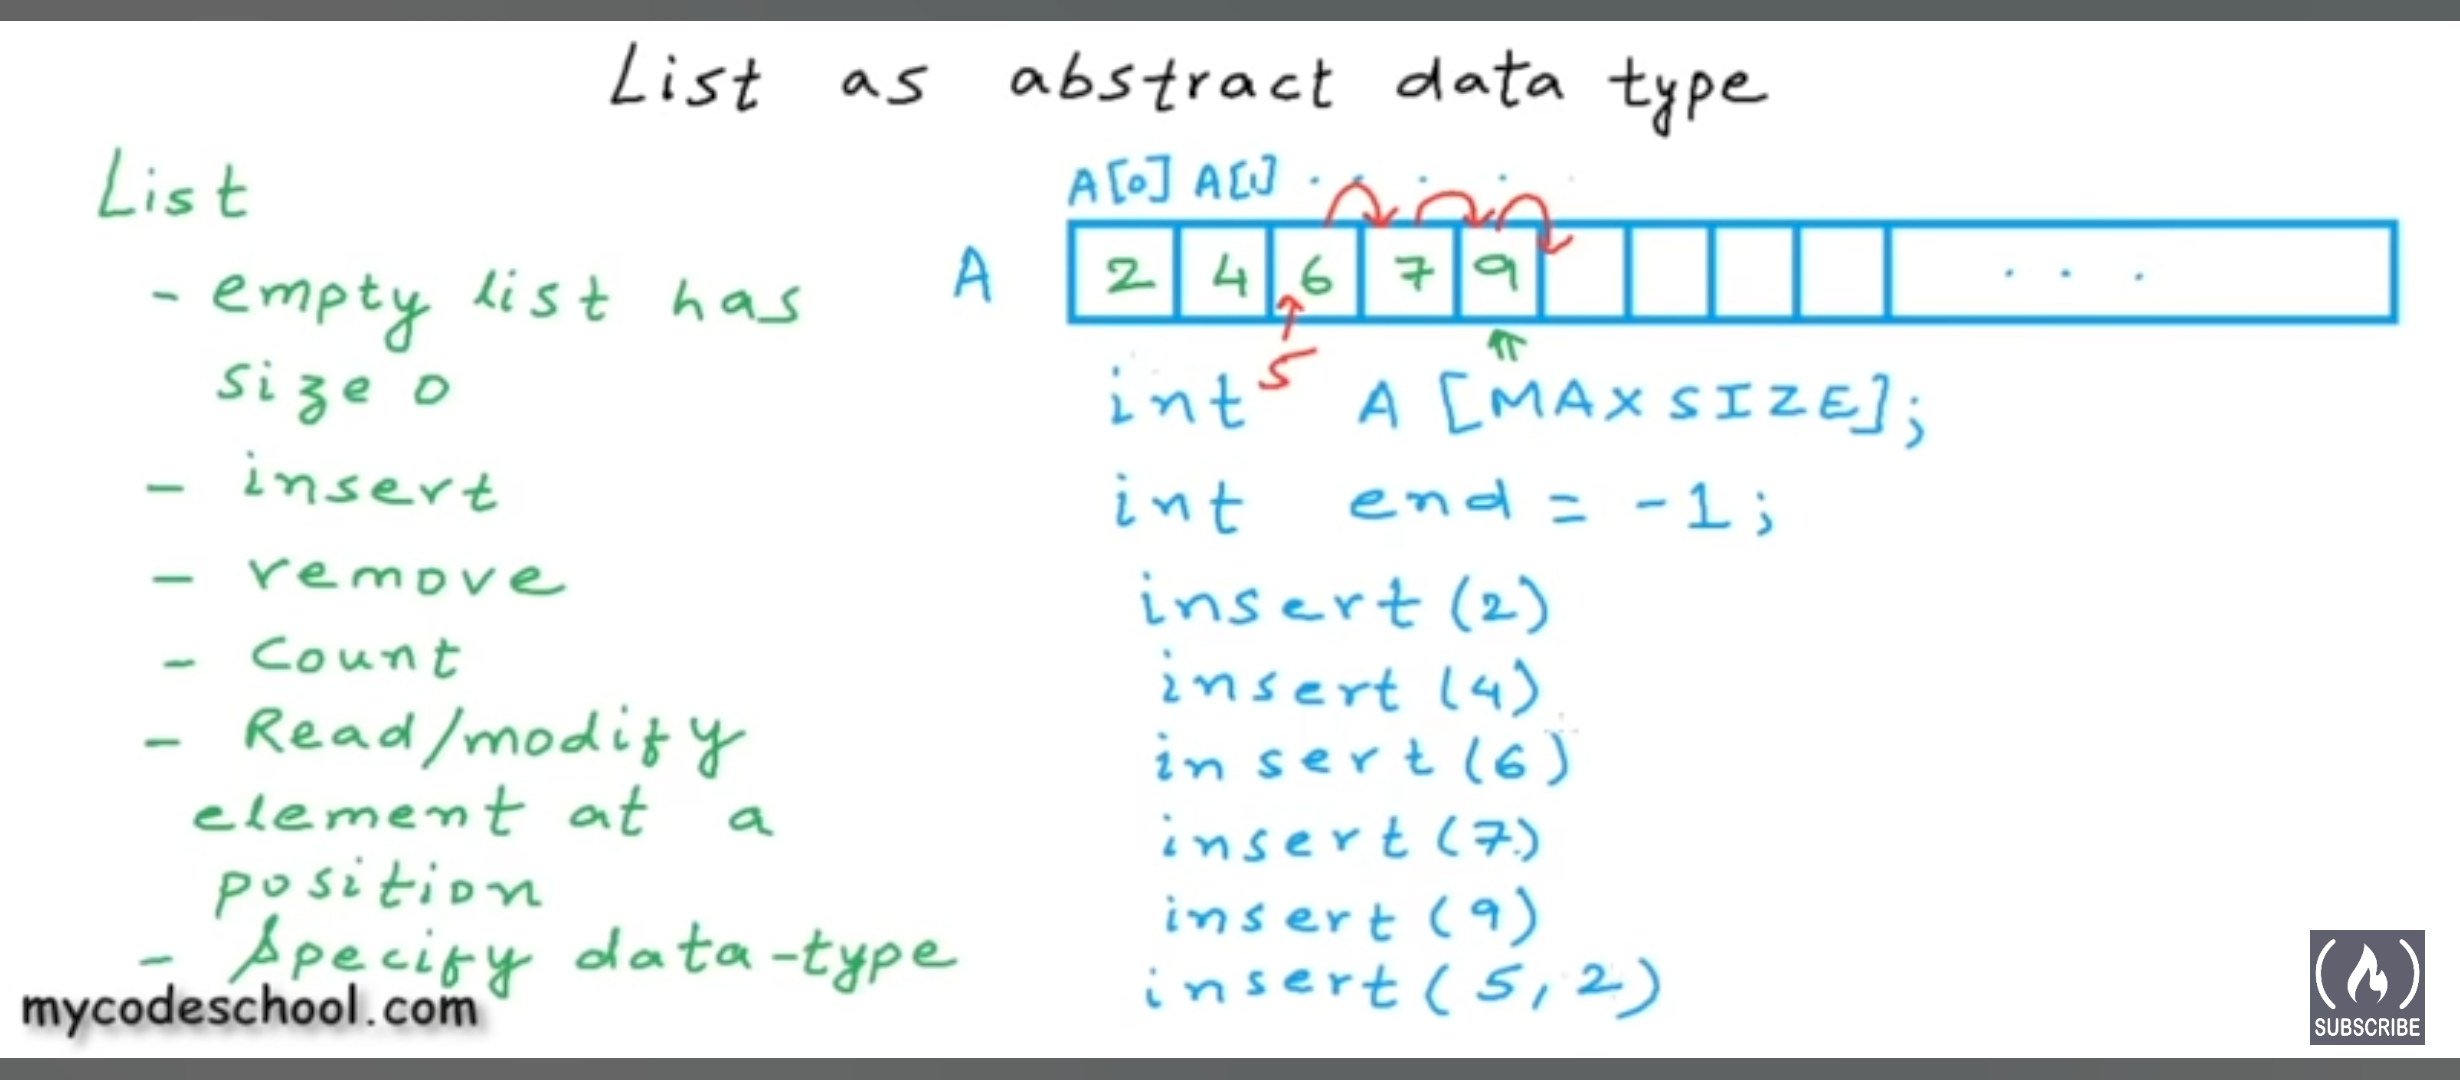 List as abstract data type
List
- empty list has
size 0
- insert
- remove
- Count
- Read/modify
element at a
position
- Specify data-type
mycodeschool.com
A[0] A[1] . . . .
A 2 4 6 7 9 . . .
5
int A [MAXSIZE];
int end = -1;
insert (2)
insert (4)
insert (6)
insert (7)
insert (9)
insert (5, 2)
SUBSCRIBE